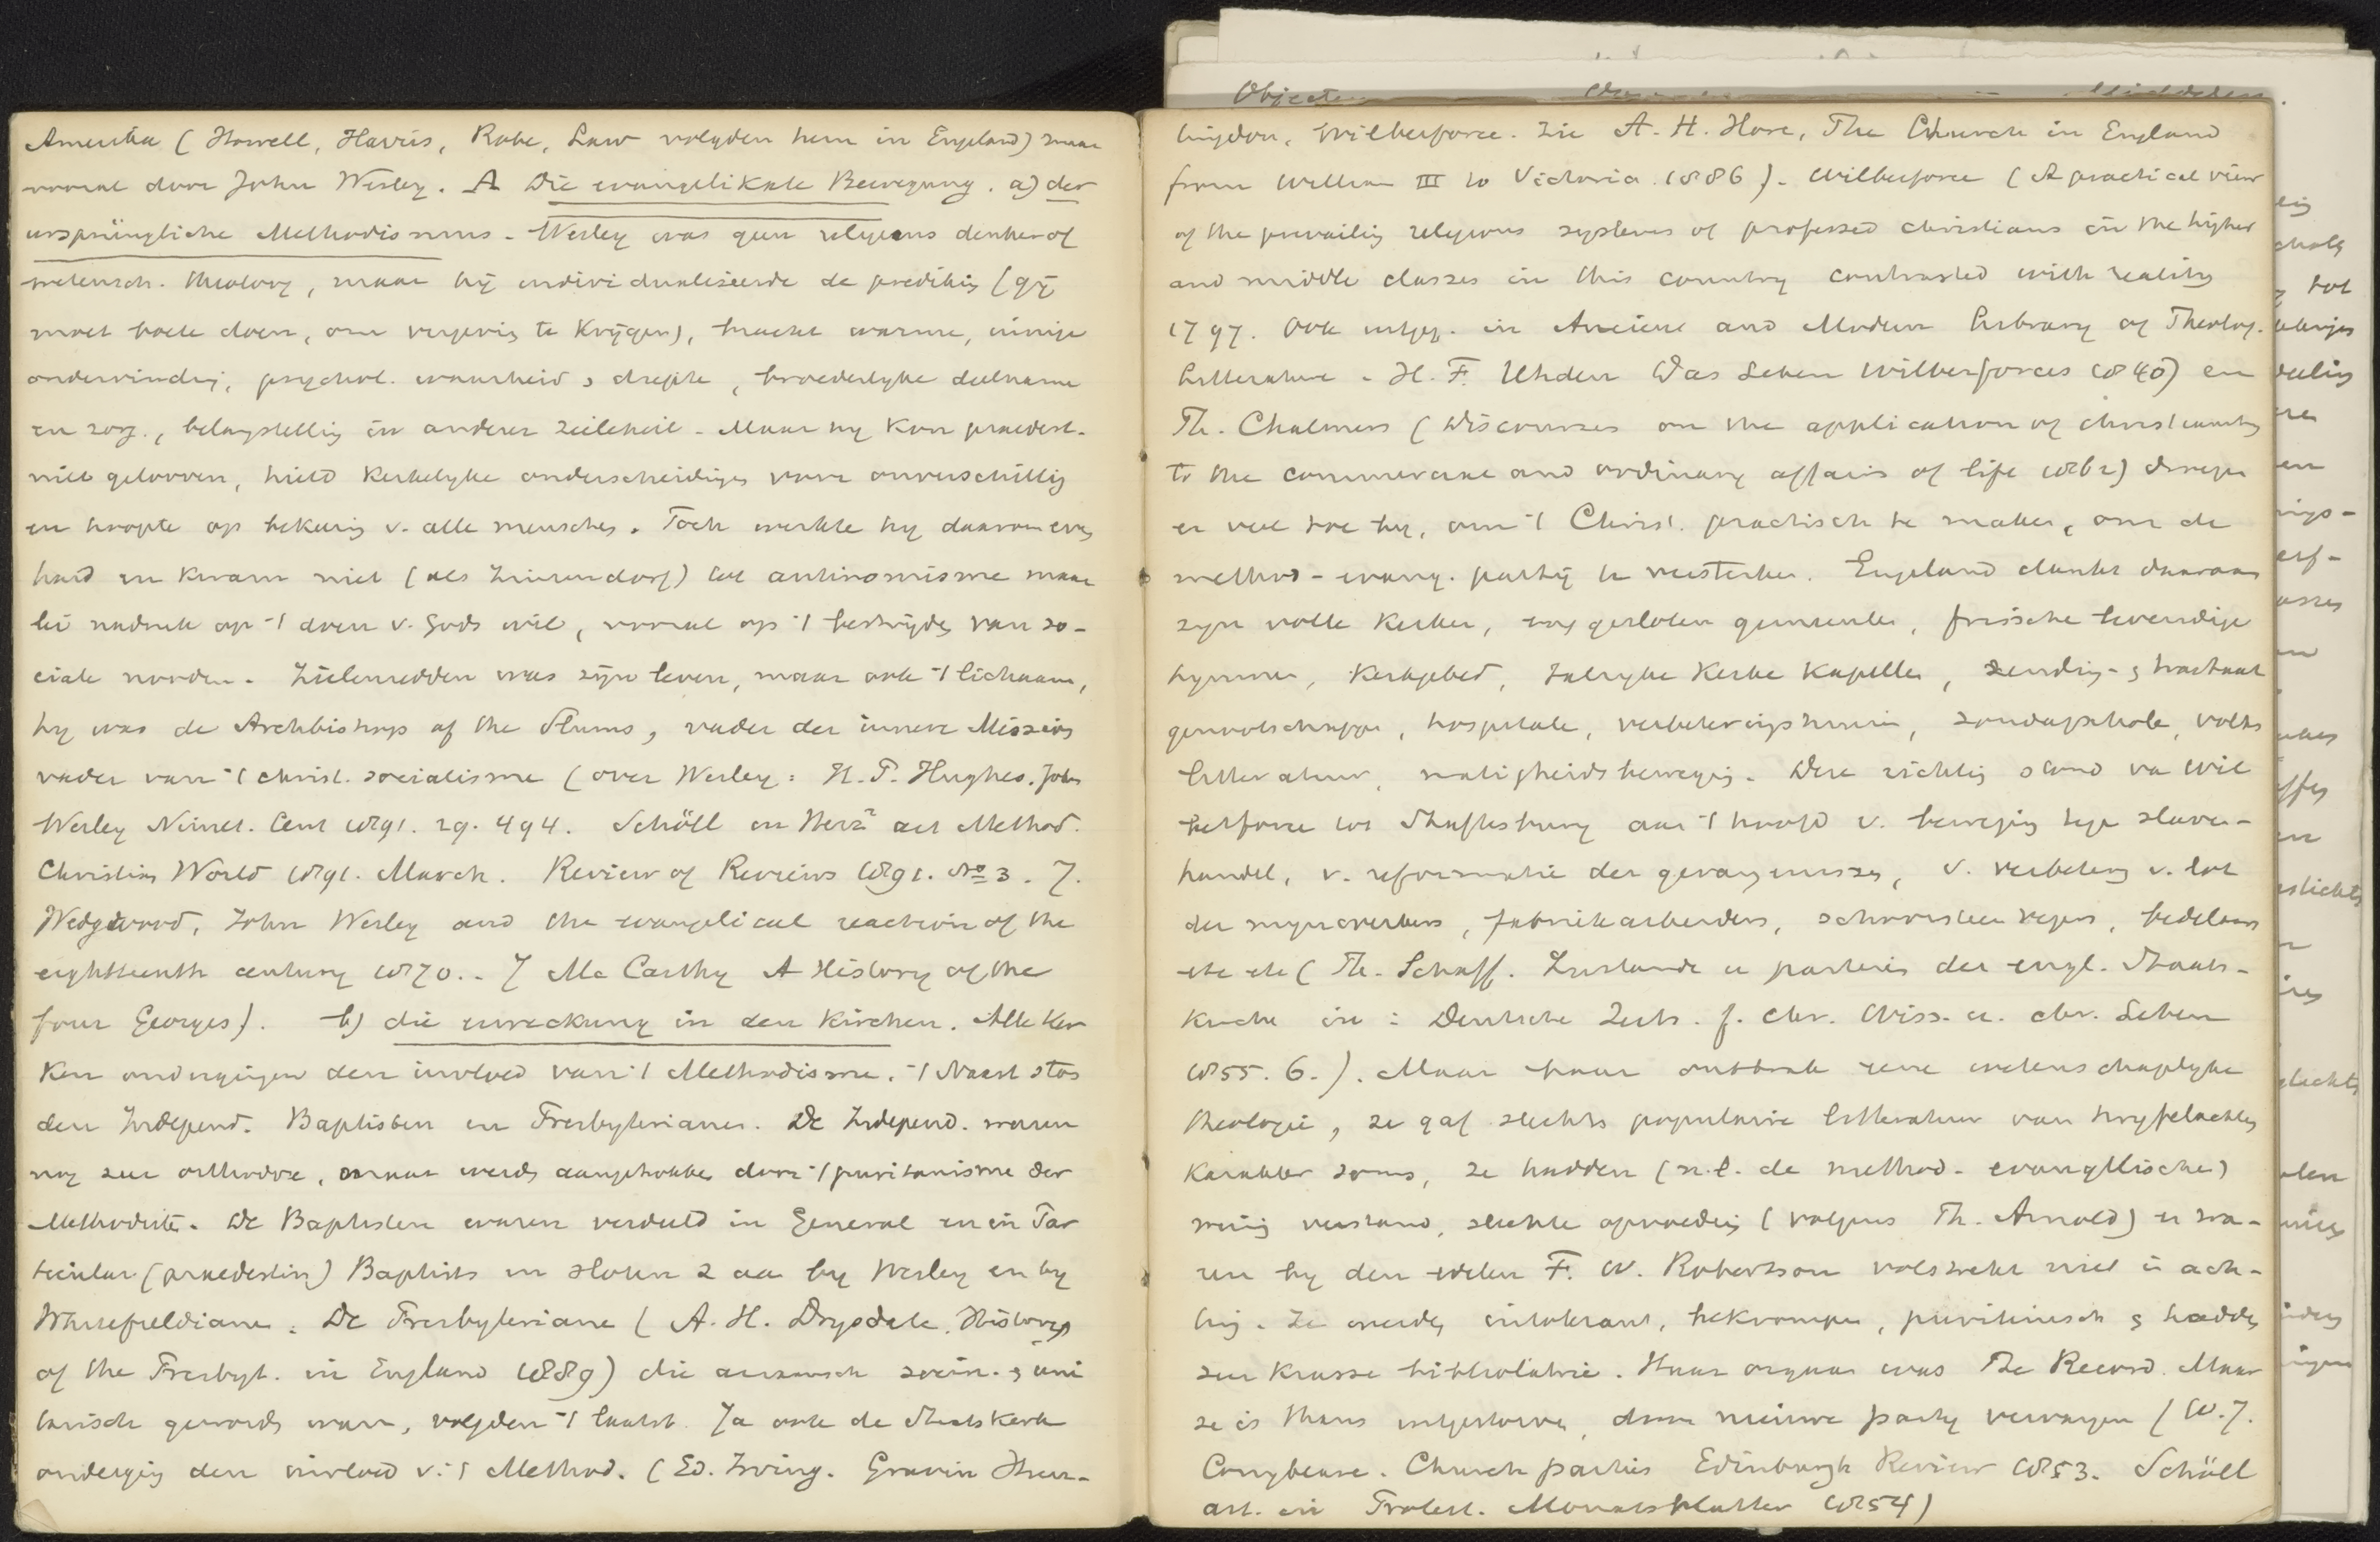 Amerika (Howell, Harris, Rabe, Law volgden hem in Engeland) maar
vooral door John Wesley. A Die evangelikale Bewegung. a) der
ursprüngliche Methodismus. Wesley was geen religieus denker of
wetensch. theoloog, maar hij individualiseerde de prediking (gij
moet boete doen, om vergeving te krijgen), bracht warme, innige
ondervinding, psychol. waarheid & diepte, broederlyke deelname
en zorg, belangstelling in anderer zieleheil. Maar hy kon praedest.
niet gelooven, hield kerkelyke onderscheidingen voor onverschillig
en hoopte op bekeering v. alle menschen. Toch werkte hy daarom even
hard en kwam niet (als Zinzendorf) tot antinomisme maar
lei nadruk op 't doen v. Gods wil, vooral op 't bestrijden van so-
ciale nooden. Zielenredden was zijn leven, maar ook 't lichaam,
hy was de Archbishop of the Slums, vader der innere Mission
vader van 't christ. socialisme (over Wesley: H. P. Hughes. John
Wesley Ninet. Cent 1891. 29. 494. Schöll in Herz² art Method.
Christian World 1891. March. Review of Reviews 1891. No 3. J.
Wedgwood, John Wesley and the evangelical reaction of the
eighteenth century 1870. - J Mc Carthy A History of the
four Georges). b) die erweckung in den Kirchen. Alle Ker
ken ondergingen den invloed van 't Methodisme. 't Naast ston
den Independ. Baptisten en Presbyterianen. De Independ. waren
nog zeer orthodox, maar werden aangetrokken door 't puritanisme der
Methodisten. De Baptisten waren verdeeld in General en in Par
ticular (praedestin) Baptists en sloten z aan by Wesley en by
Whitefieldianen. De Presbyterianen (A. H. Drysdale. History
of the Presbyt. in England 1889) die ariaansch socin. & uni
tarisch geworden waren, volgden 't laatst. Ja ook de Staatskerk
onderging den invloed v. 't Method. (Ed. Irving. Gravin Hun-
tingdon, Wilberforce. Zie A. H. Hore, The Church in England
from William III to Victoria. 1886). Wilberforce (A practical view
of the prevailing religious systems of professed christians in the higher
and middle classes in this country contrasted with reality
1797. Ook uitgeg. in Ancient and Modern Library of Theolog.
Litterature. H. F. Uhden Das Leben Wilberforces 1840) en
Th. Chalmers (Discourses on the application of christianity
to the commercial and ordinary affairs of life 1862) droegen
er veel toe by, om 't Christ. practisch te maken, om de
method-evang. partij te versterken. Engeland dankt daaraan
zyn volle kerken, aaneengesloten gemeenten, frissche levendige
hymnen, kerkgebed, talryke kerken kapellen, zending- & tractaat
genootschappen, hospitale, verbeteringshuizen, zondagschole, volks
litteratuur, matigheidsbeweging. Deze richting stond van Wil
berforce tot Shaftesbury aan 't hoofd v. beweging tegen slaven-
handel, v. reformatie der gevangenissen, v. verbetering v. lot
der mynwerkers, fabriekarbeiders, schoorsteenvegers, bedelaars
etc etc (Th. Schaff. Zustande u parteien der engl. Staats-
kirche in: Deutsche Zeits. f. chr. Wiss. u. chr. Leben
1855. 6.). Maar haar ontbrak eene wetenschaplyke
theologie, ze gaf slechts populaire litteratuur van twyfelachtig
karakter soms, ze hadden (n.l. de method-evangelische)
weinig verstand, slechte opvoeding (volgens Th. Arnold) en wa-
ren by den edelen F. W. Robertson volstrekt niet in ach-
ting. Ze werden intolerant, bekrompen, puriteinsch & hadden
zeer krasse bibliolatrie. Haar orgaan was The Record. Maar
ze is thans uitgestorven, door nieuwe party vervangen (W. J.
Conybeare. Church parties Edinburgh Review 1853. Schöll
art. in Protest. Monatsblatter 1854)